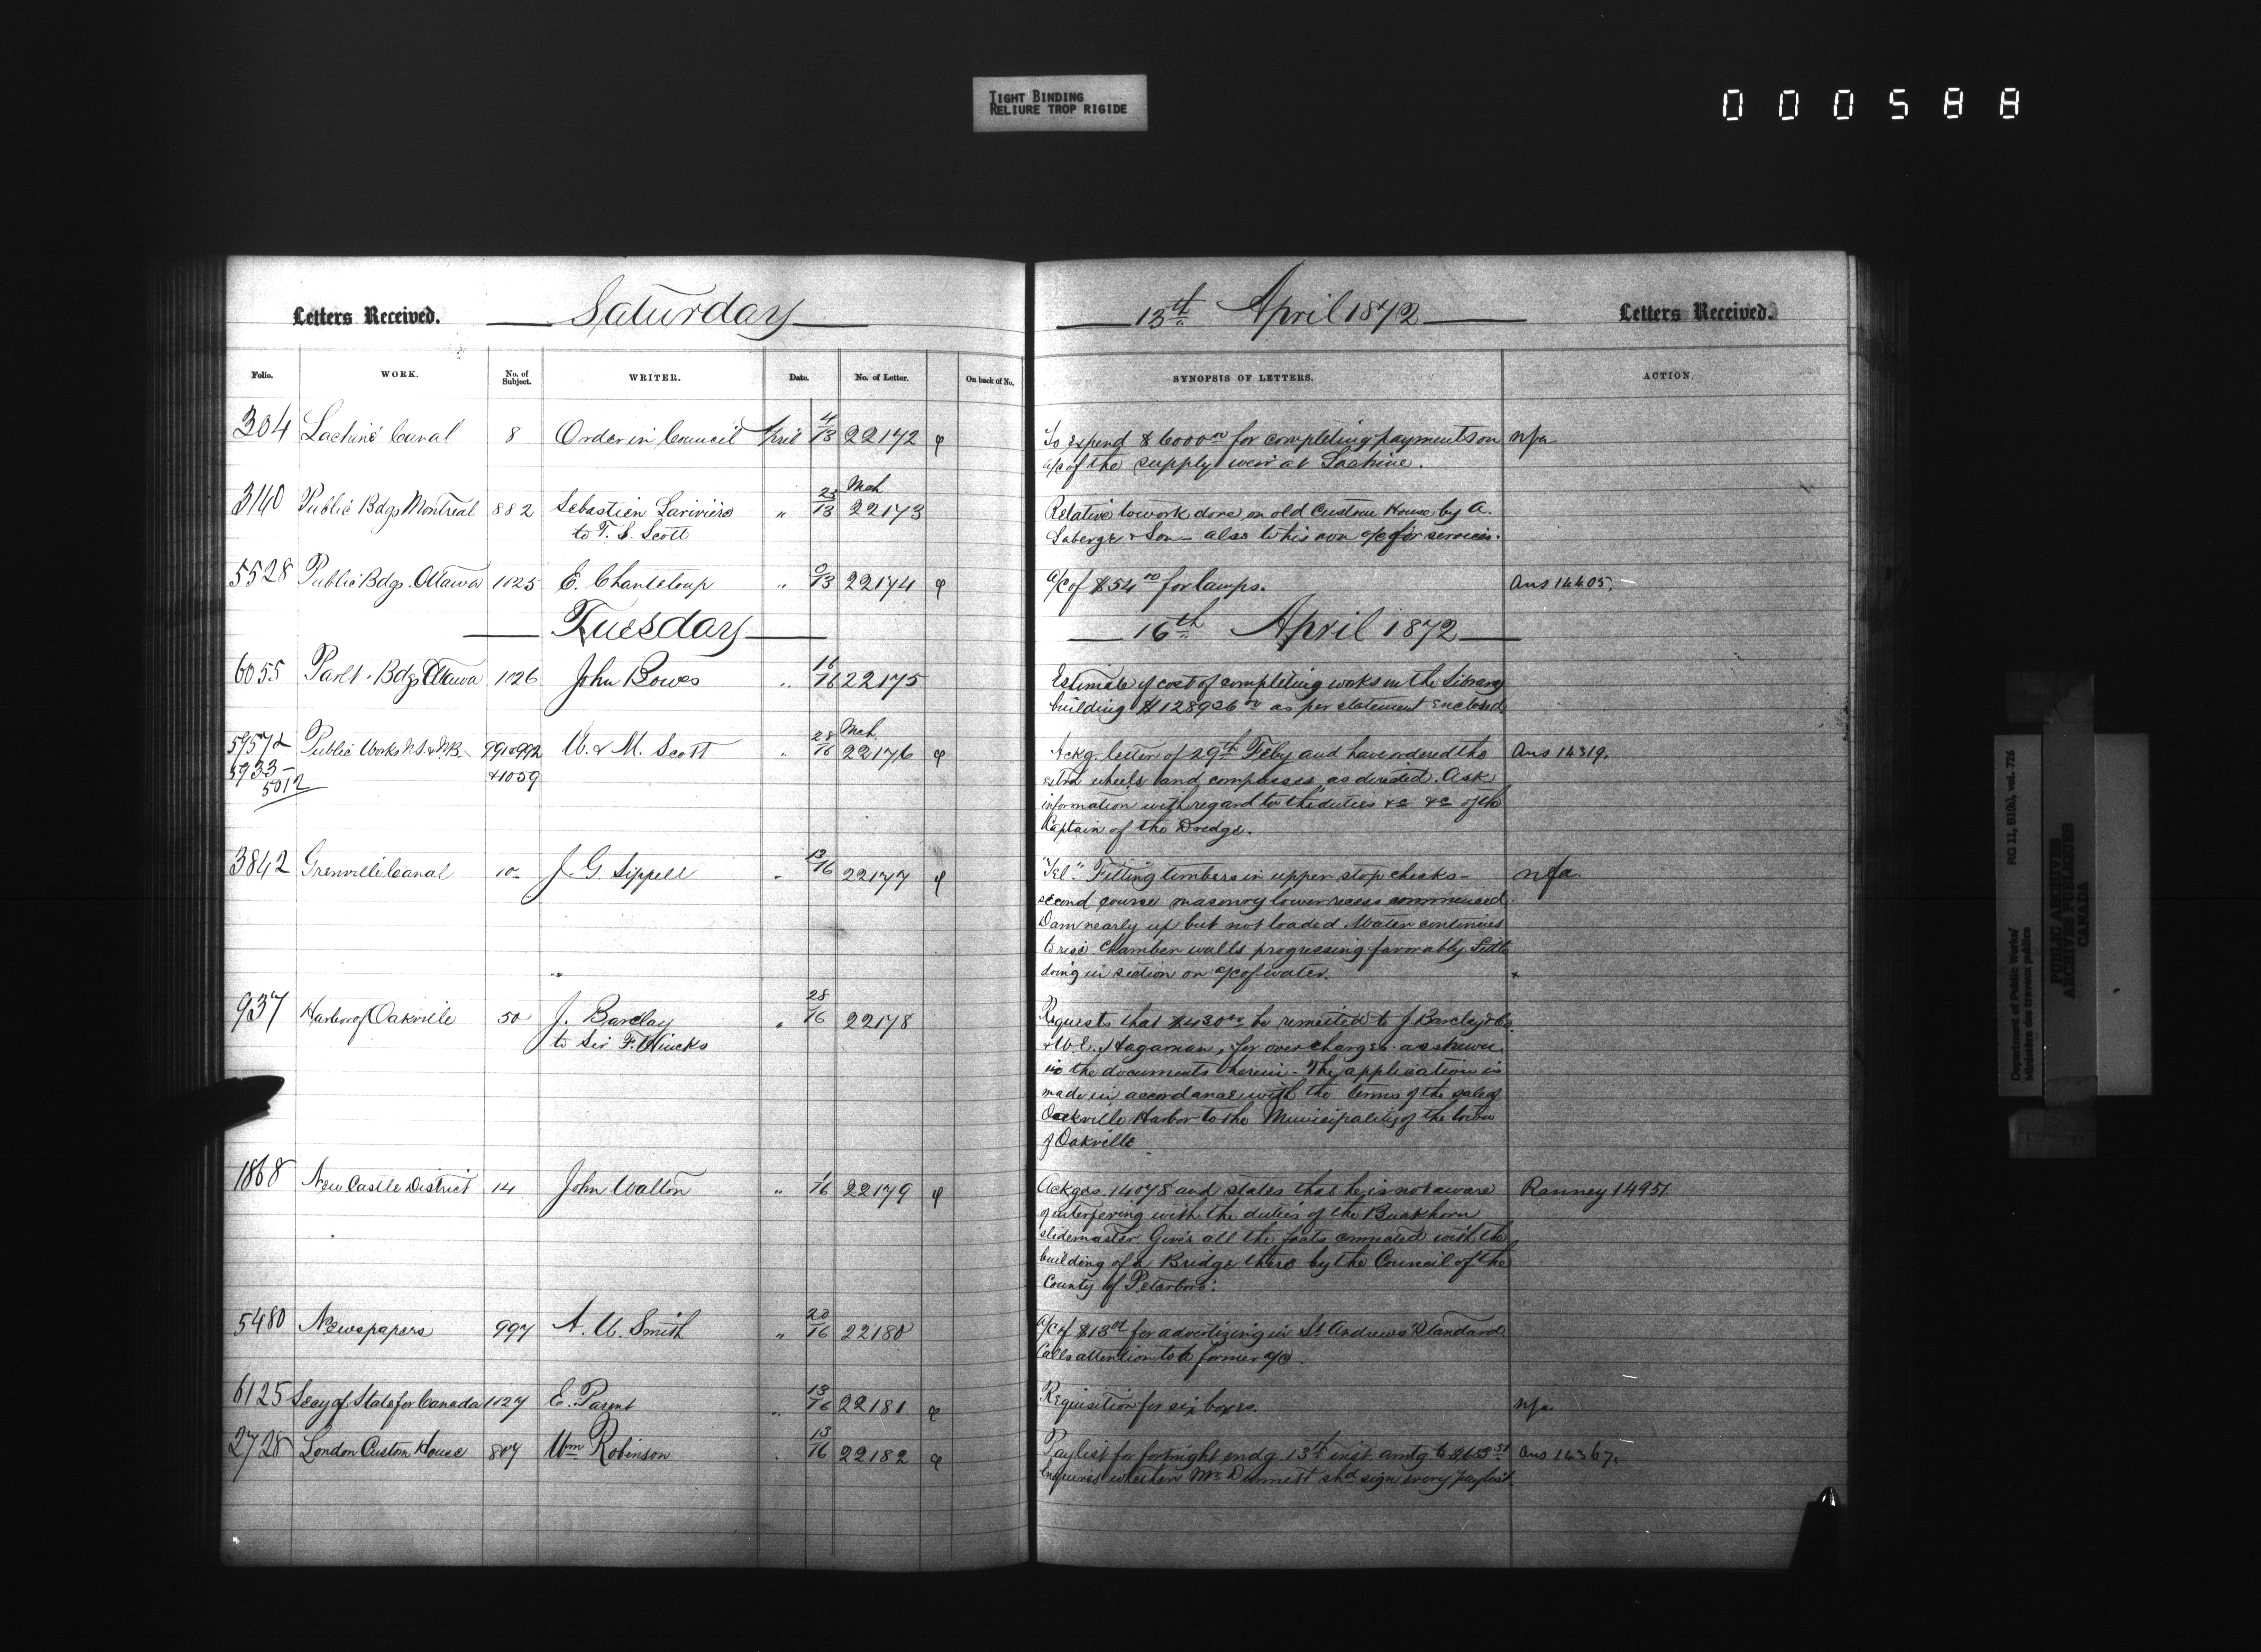 TIGHT BINDING
RELIURE TROP RIGIDE
000588
Letters Received. Saturday
13th April 1872 Letters Received.
Folio. WORK. No. of Subject. WRITER. Date. No. of Letter. On back of No. SYNOPSIS OF LETTERS. ACTION.
304 Lachine Canal 8 Order in Council April 4/13 22172 φ To expend $6000 00 for completing payments on nfa
a/c of the supply weir at Lachine.
3140 Public Bdgs Montreal 882 Sebastien Lariviere " 25/13 Mch 22173 Relative to work done on old Custom House by A.
to T. S. Scott Laberge & Son - also to his own a/c for services.
5528 Public Bdgs. Ottawa 1125 E. Chanteloup " 9/13 22174 φ a/c of $54 00 for lamps. Ans 14405.
Tuesday 16th April 1872
6055 Parlt. Bdgs Ottawa 1126 John Bowes " 16/16 22175 Estimate of cost of completing works in the Library
building $128926 00 as per statement enclosed.
Public Works N.S. & N.B. 991&992 W. & M. Scott " 28/16 Mch. 22176 φ Ackg. letter of 29th Feby and have ordered the Ans 14319.
5933- &1059 extra wheels and compasses, as directed. Ask
5012 information with regard to the duties &c &c of the
Captain of the Dredge.
3842 Grenville Canal 10 J. G. Sippell " 13/16 22177 φ "Tel." Fitting timbers in upper stop checks - nfa.
second course masonry lower recess commenced.
Dam nearly up but not loaded. Water continues
to rise Chamber walls progressing favorably Little
doing in section on a/c of water.
937 Harbor of Oakville 50 J. Barclay " 28/16 22178 Requests that $430 00 be remitted to J Barclay & Co.
to Sir F. Hincks & W. E. Hagaman, for overcharges as shewn
in the documents herein. The application is
made in accordance with the terms of the sale of
Oakville Harbor to the Municipality of the town
of Oakville
1868 New Castle District 14 John Walton " 1/16 22179 φ Ackges. 14078 and states that he is not aware Ranney 14951.
of interfering with the duties of the Buckhorn
slidemaster. Gives all the facts connected with the
building of a Bridge there by the Council of the
County of Peterboro'.
5480 Newspapers 997 A. W. Smith " 20/16 22180 a/c of $13 for advertizing in St Andrews Standard.
Calls attention to a former a/c.
6125 Secy of State for Canada 1127 E. Parent " 13/16 22181 φ Requisition for six boxes. nfa
2728 London Custom House 807 Wm Robinson " 13/16 22182 φ Paylist for fortnight endg 13th inst. amtg to Ans 14367.
Enquires whether Mr shd sign every paylist.
Department of Public Works/ RG 11, B1(b), vol. 726
Ministère des travaux publics
PUBLIC ARCHIVES
ARCHIVES PUBLIQUES
CANADA